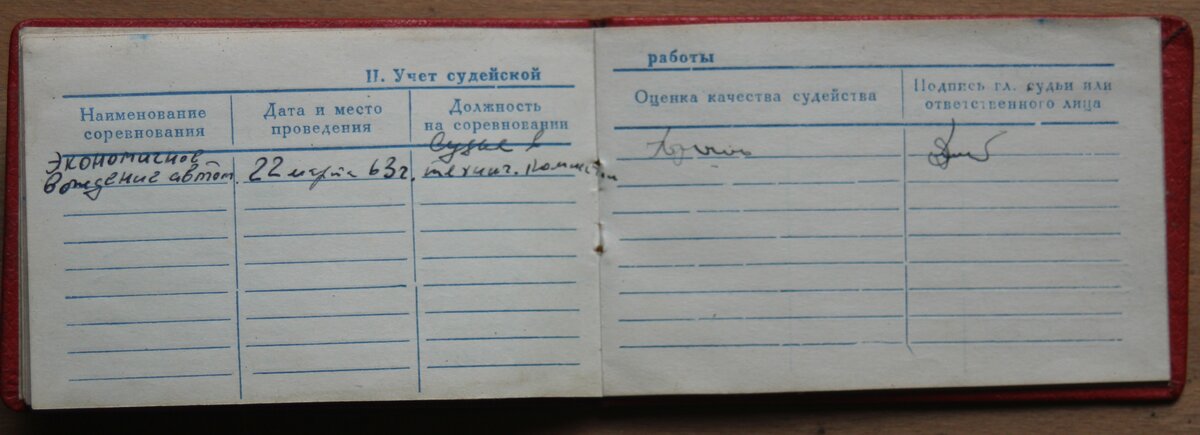 II. Учет судейской работы
Наименование соревнования
Дата и место проведения
Должность на соревновании
Оценка качества судейства
Подпись гл. судьи или ответственного лица
Экономичное
вождение автом.
22 марта 63 г.
Судья в
технич. комиссии